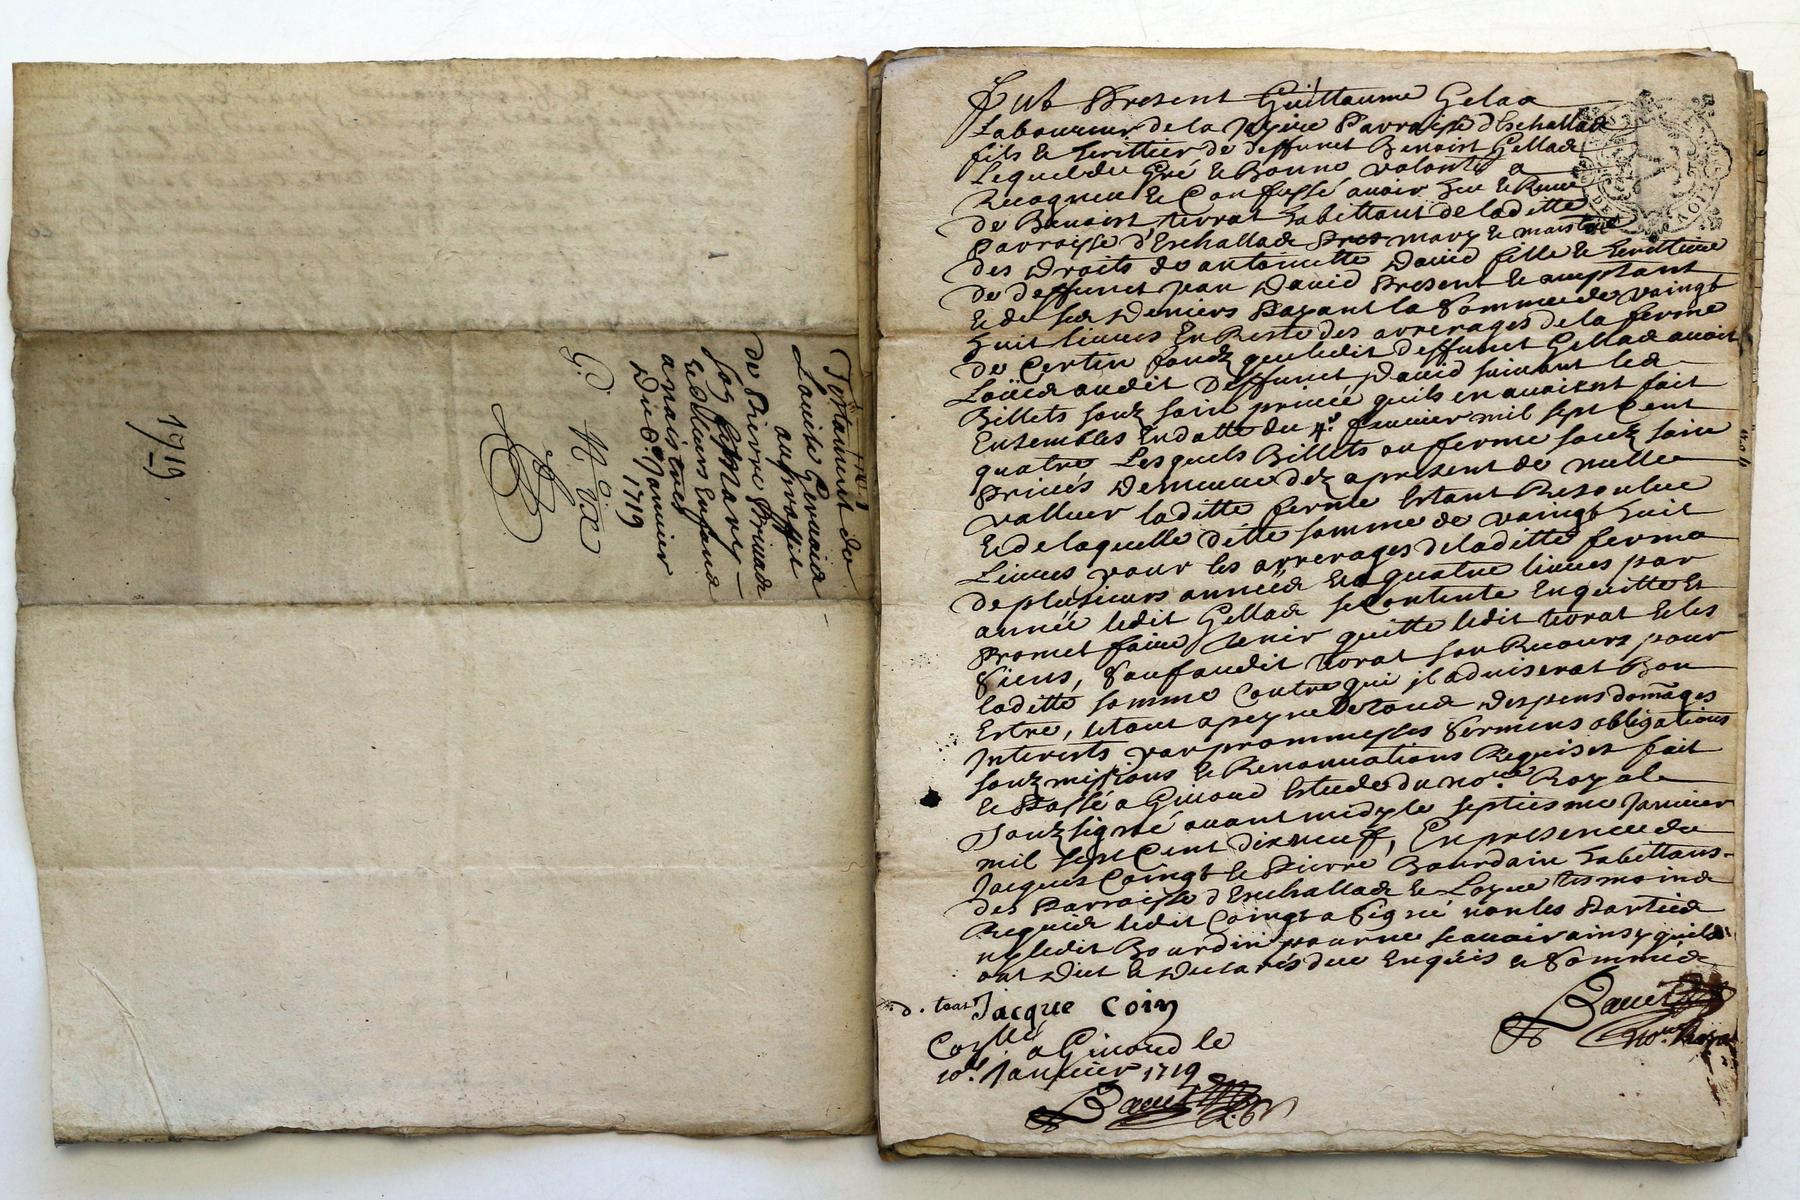 Testament de
Louise Gervaise
au proffit
de Pierre
son Mary
et de leurs Enfans
Du 6e Janvier
1719
1719.
Fut Present Guillaume Gelaa
Laboureur de la Parroisse d'Eschallas
fils et heritier de deffunct Benoist Gellas
Lequel du Gré et Bonne volonté a
Recogneu et Confessé avoir heu et Receu
de Benoist tivrat habittant de laditte
Parroisse d'Eschallas mary et maistre
des Droits de antoinette David fille et heritiere
de deffunct jean David Present et aceptant
et de ses Deniers Payant la Somme de vaingt
huit livres En Reste des arrerages de la ferme
de Certin fondz que ledit deffunct Gellas avoit
Loüés audit Deffunct David suivant les
Billets souz sain privée quils en avoient fait
Ensembles En datte du 4e fevrier mil sept Cent
quatre Lesquels Billets ou ferme souz sain
Privés Demeure dez apresent de nulle
valleur laditte ferme Estant Resoulue
Et de laquelle ditte somme de vaingt huit
Livres pour les arrerages de laditte ferme
de plusieurs années Et a quatre livres par
année ledit Gellas se Contente En quitte Et
Promet faire tenir quitte ledit tivrat et les
Siens, Sauf audit tivrat son Recours pour
laditte somme Contre qui jl advisera Bon
Estre, le tout a peyne De tous Despens domages
Interests par prommesses Sermens obligations
souzmissions et Renonciations Requises fait
et Passé a Givord Estude du nore Royal
souzsigné avant midy le septiesme Janvier
mil sept Cent dix neuf, En presence de
Jacques Coingt et Pierre Bourdain habittans
des Parroisse d'Eschallas et Loyre tesmoins
Requis ledit Coingt a Signé non les Parties
ny ledit Bourdin pour ne scavoir ainsy quils
ont Dict et Declarés due Enquis et Sommés
Jacque Coin
Collé a Givord le
10e Janvier 1719